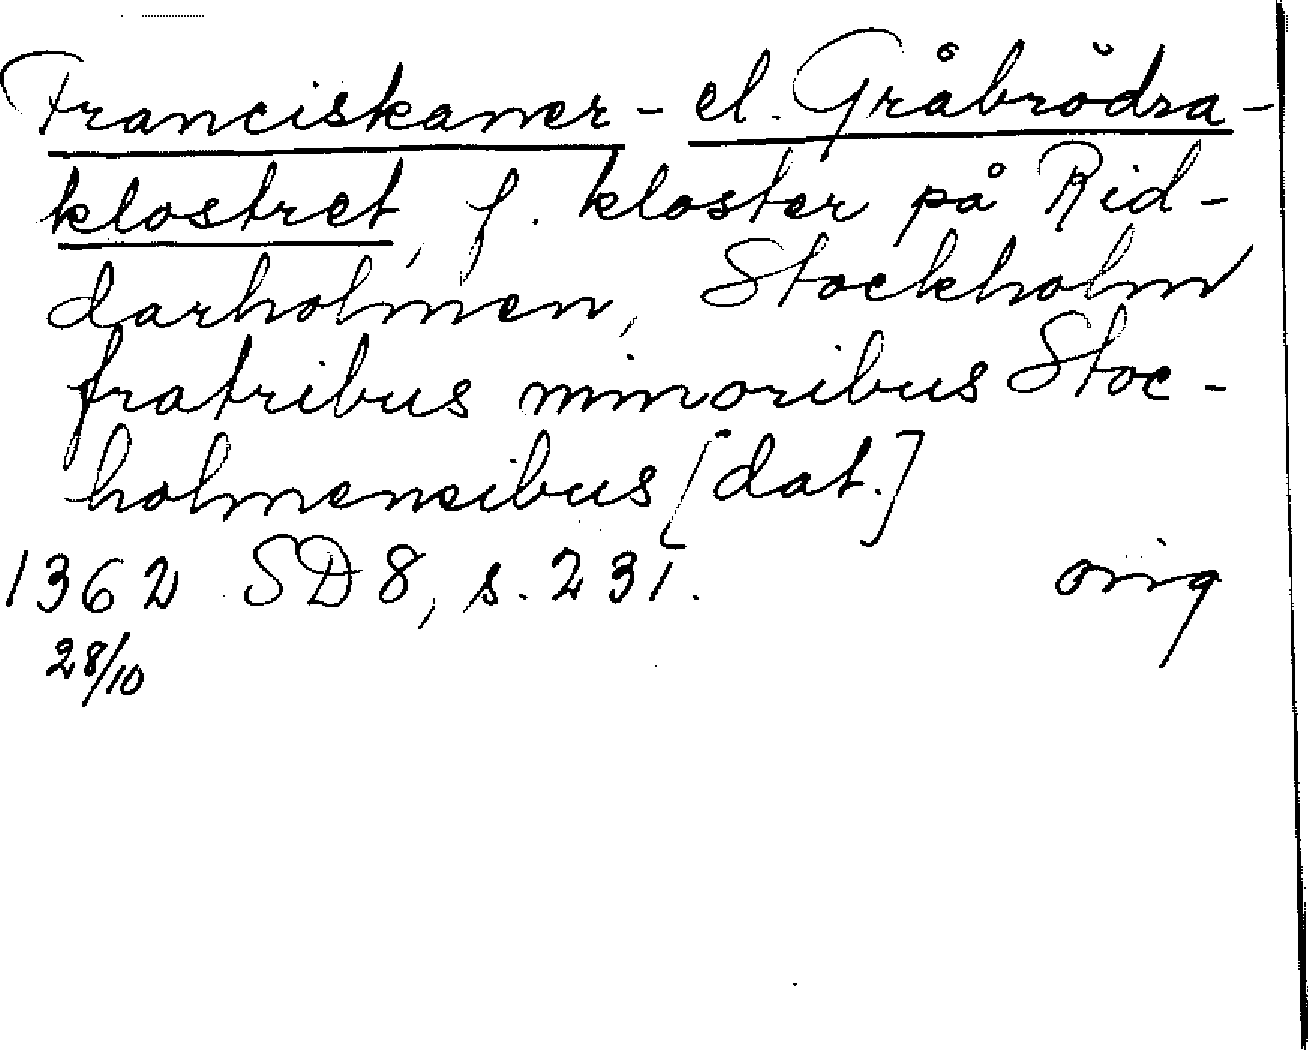 Franciskaner- el. Gråbrödra-
klostret, f. kloster på Rid-
darholmen, Stockholm
fratribus minoribus Stoc-
holmensibus [dat.]
1362 SD 8, s. 231. orig
28/10